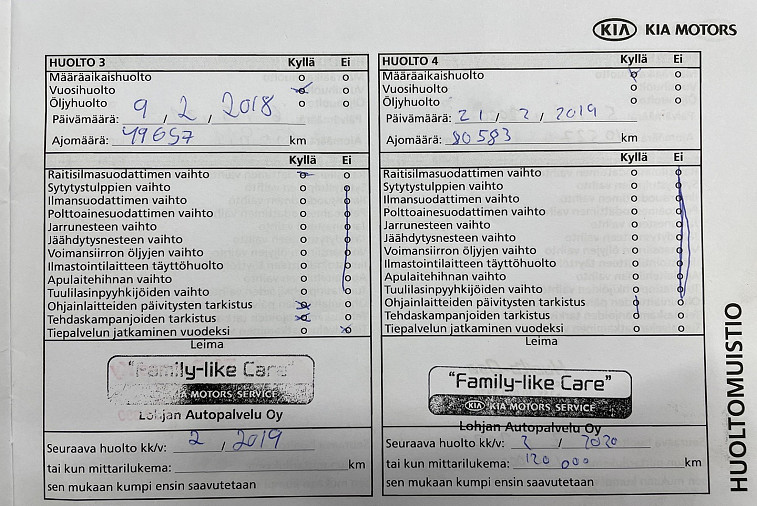 KIA KIA MOTORS
HUOLTO 3 Kyllä Ei
Määräaikaishuolto
Vuosihuolto
Öljyhuolto
Päivämäärä: 9 / 2 / 2018
Ajomäärä: 49657 km
Kyllä Ei
Raitisilmasuodattimen vaihto
Sytytystulppien vaihto
Ilmansuodattimen vaihto
Polttoainesuodattimen vaihto
Jarrunesteen vaihto
Jäähdytysnesteen vaihto
Voimansiirron öljyjen vaihto
Ilmastointilaitteen täyttöhuolto
Apulaitehihnan vaihto
Tuulilasinpyyhkijöiden vaihto
Ohjainlaitteiden päivitysten tarkistus
Tehdaskampanjoiden tarkistus
Tiepalvelun jatkaminen vuodeksi
Leima
"Family-like Care"
KIA MOTORS SERVICE
Lohjan Autopalvelu Oy
Seuraava huolto kk/v: 2 / 2019
tai kun mittarilukema: km
sen mukaan kumpi ensin saavutetaan
HUOLTO 4 Kyllä Ei
Määräaikaishuolto
Vuosihuolto
Öljyhuolto
Päivämäärä: 21 / 2 / 2019
Ajomäärä: 80583 km
Kyllä Ei
Raitisilmasuodattimen vaihto
Sytytystulppien vaihto
Ilmansuodattimen vaihto
Polttoainesuodattimen vaihto
Jarrunesteen vaihto
Jäähdytysnesteen vaihto
Voimansiirron öljyjen vaihto
Ilmastointilaitteen täyttöhuolto
Apulaitehihnan vaihto
Tuulilasinpyyhkijöiden vaihto
Ohjainlaitteiden päivitysten tarkistus
Tehdaskampanjoiden tarkistus
Tiepalvelun jatkaminen vuodeksi
Leima
"Family-like Care"
KIA KIA MOTORS SERVICE
Lohjan Autopalvelu Oy
Seuraava huolto kk/v: 2 / 2020
tai kun mittarilukema: 120 000 km
sen mukaan kumpi ensin saavutetaan
HUOLTOMUISTIO